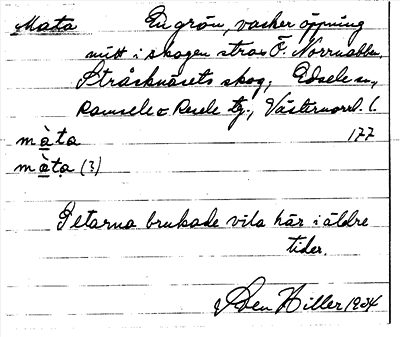 Mata En grön, vacker öppning
mitt i skogen strax Ö. Norrnabben,
Stråsknärets skog, Edsele sn,
Ramsele o Resele tg., Västernorrl. l.
màta 177
màta (3)
Getarna brukade vila här i äldre
tider.
Sven Hiller 1934